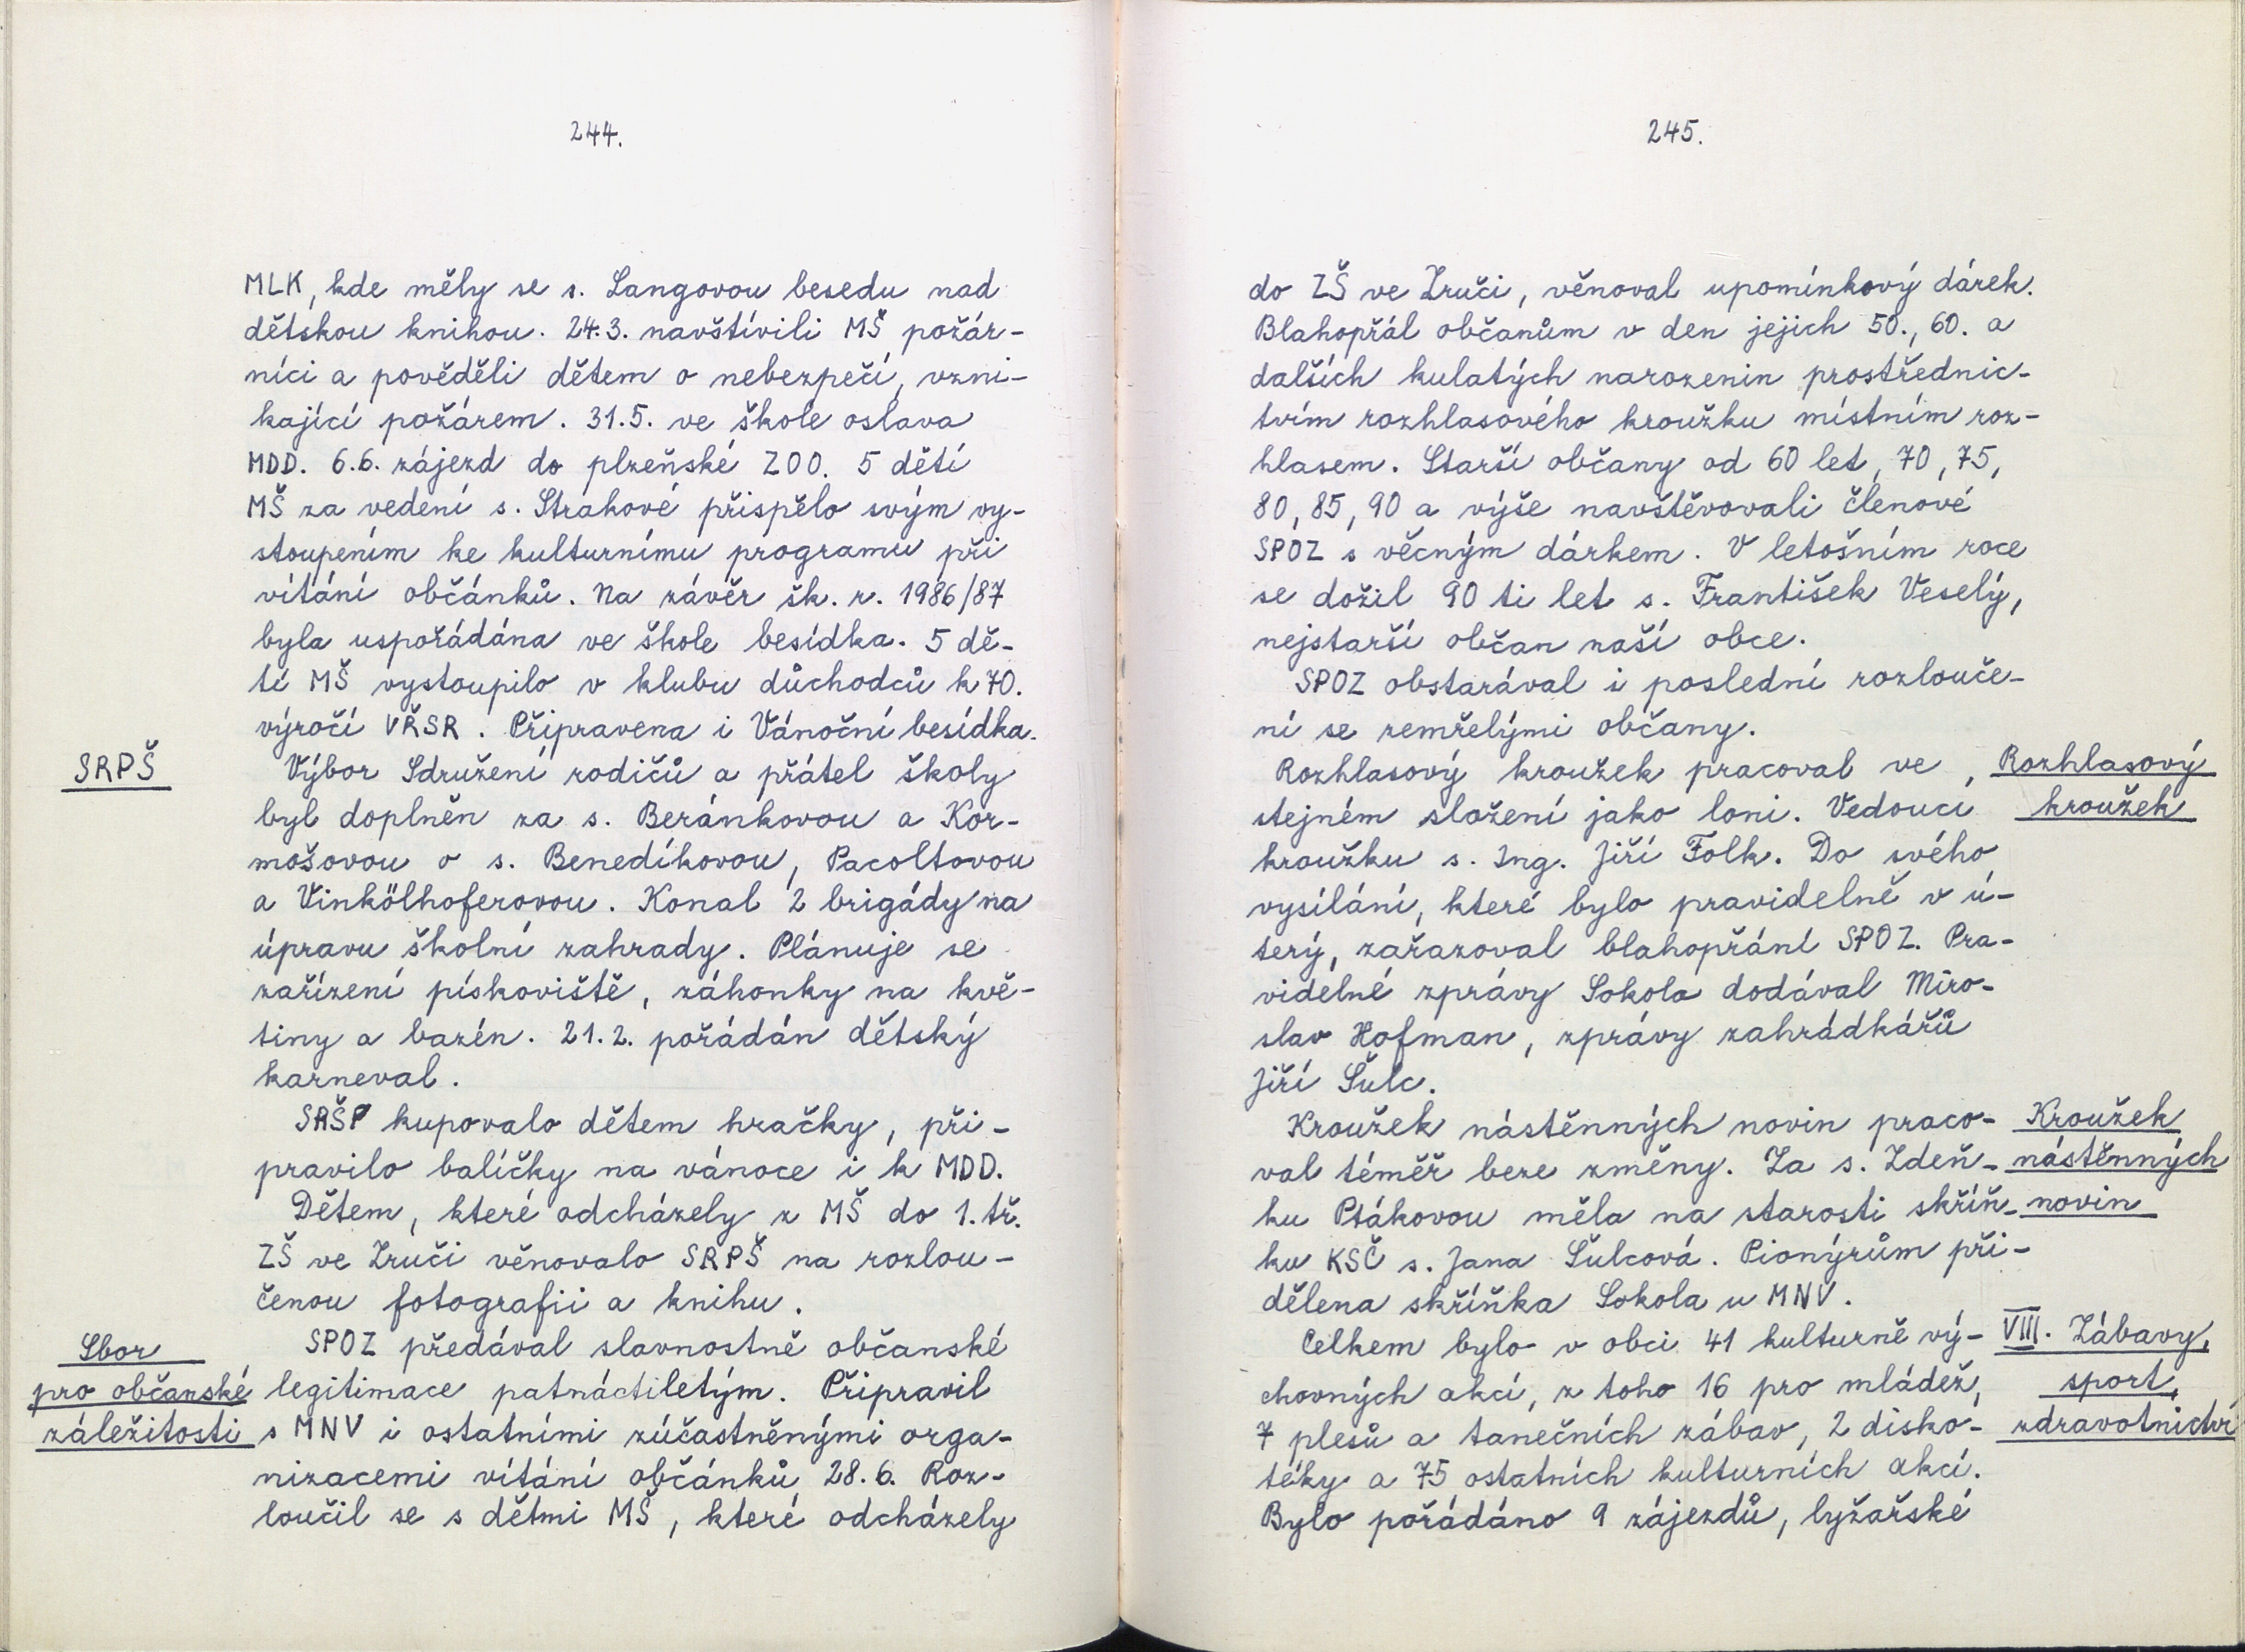 244.
MLK, kde měly se s. Langovou besedu nad
dětskou knihou. 24.3. navštívili MŠ požár-
níci a pověděli dětem o nebezpečí, vzni-
kající požárem. 31.5. ve škole oslava
MDD. 6.6. zájezd do plzeňské ZOO. 5 dětí
MŠ za vedení s. Strakové přispělo svým vy-
stoupením ke kulturnímu programu při
vítání občánků. Na závěr šk. r. 1986/87
byla uspořádána ve škole besídka. 5 dě-
tí MŠ vystoupilo v klubu důchodců k 70.
výročí VŘSR. Připravena i Vánoční besídka.
SRPŠ
Výbor Sdružení rodičů a přátel školy
byl doplněn za s. Beránkovou a Kor-
mošovou o s. Benedíkovou, Pacoltovou
a Vinkölhoferovou. Konal 2 brigády na
úpravu školní zahrady. Plánuje se
zařízení pískoviště, záhonky na kvě-
tiny a bazén. 21.2. pořádán dětský
karneval.
SRŠP kupovalo dětem hračky, při-
pravilo balíčky na vánoce i k MDD.
Dětem, které odcházely z MŠ do 1. tř.
ZŠ ve Zruči věnovalo SRPŠ na rozlou-
čenou fotografii a knihu.
Sbor
pro občanské
záležitosti
SPOZ předával slavnostně občanské
legitimace patnáctiletým. Připravil
s MNV i ostatními zúčastněnými orga-
nizacemi vítání občánků 28.6. Roz-
loučil se s dětmi MŠ, které odcházely
245.
do ZŠ ve Zruči, věnoval upomínkový dárek.
Blahopřál občanům v den jejich 50., 60. a
dalších kulatých narozenin prostřednic-
tvím rozhlasového kroužku místním roz-
hlasem. Starší občany od 60 let, 70, 75,
80, 85, 90 a výše navštěvovali členové
SPOZ s věcným dárkem. V letošním roce
se dožil 90 ti let s. František Veselý,
nejstarší občan naší obce.
SPOZ obstarával i poslední rozlouče-
ní se zemřelými občany.
Rozhlasový kroužek pracoval ve
stejném složení jako loni. Vedoucí
kroužku s. Ing. Jiří Folk. Do svého
vysílání, které bylo pravidelně v ú-
terý, zařazoval blahopřání SPOZ. Pra-
videlné zprávy Sokola dodával Miro-
slav Hofman, zprávy zahrádkářů
Jiří Šulc.
Rozhlasový
kroužek
Kroužek nástěnných novin praco-
val téměř beze změny. Za s. Zdeň-
ku Ptákovou měla na starosti skříň-
ku KSČ s. Jana Šulcová. Pionýrům při-
dělena skříňka Sokola u MNV.
Kroužek
nástěnných
novin
Celkem bylo v obci 41 kulturně vý-
chovných akcí, z toho 16 pro mládež,
7 plesů a tanečních zábav, 2 disko-
téky a 75 ostatních kulturních akcí.
Bylo pořádáno 9 zájezdů, lyžařské
VIII. Zábavy,
sport,
zdravotnictví